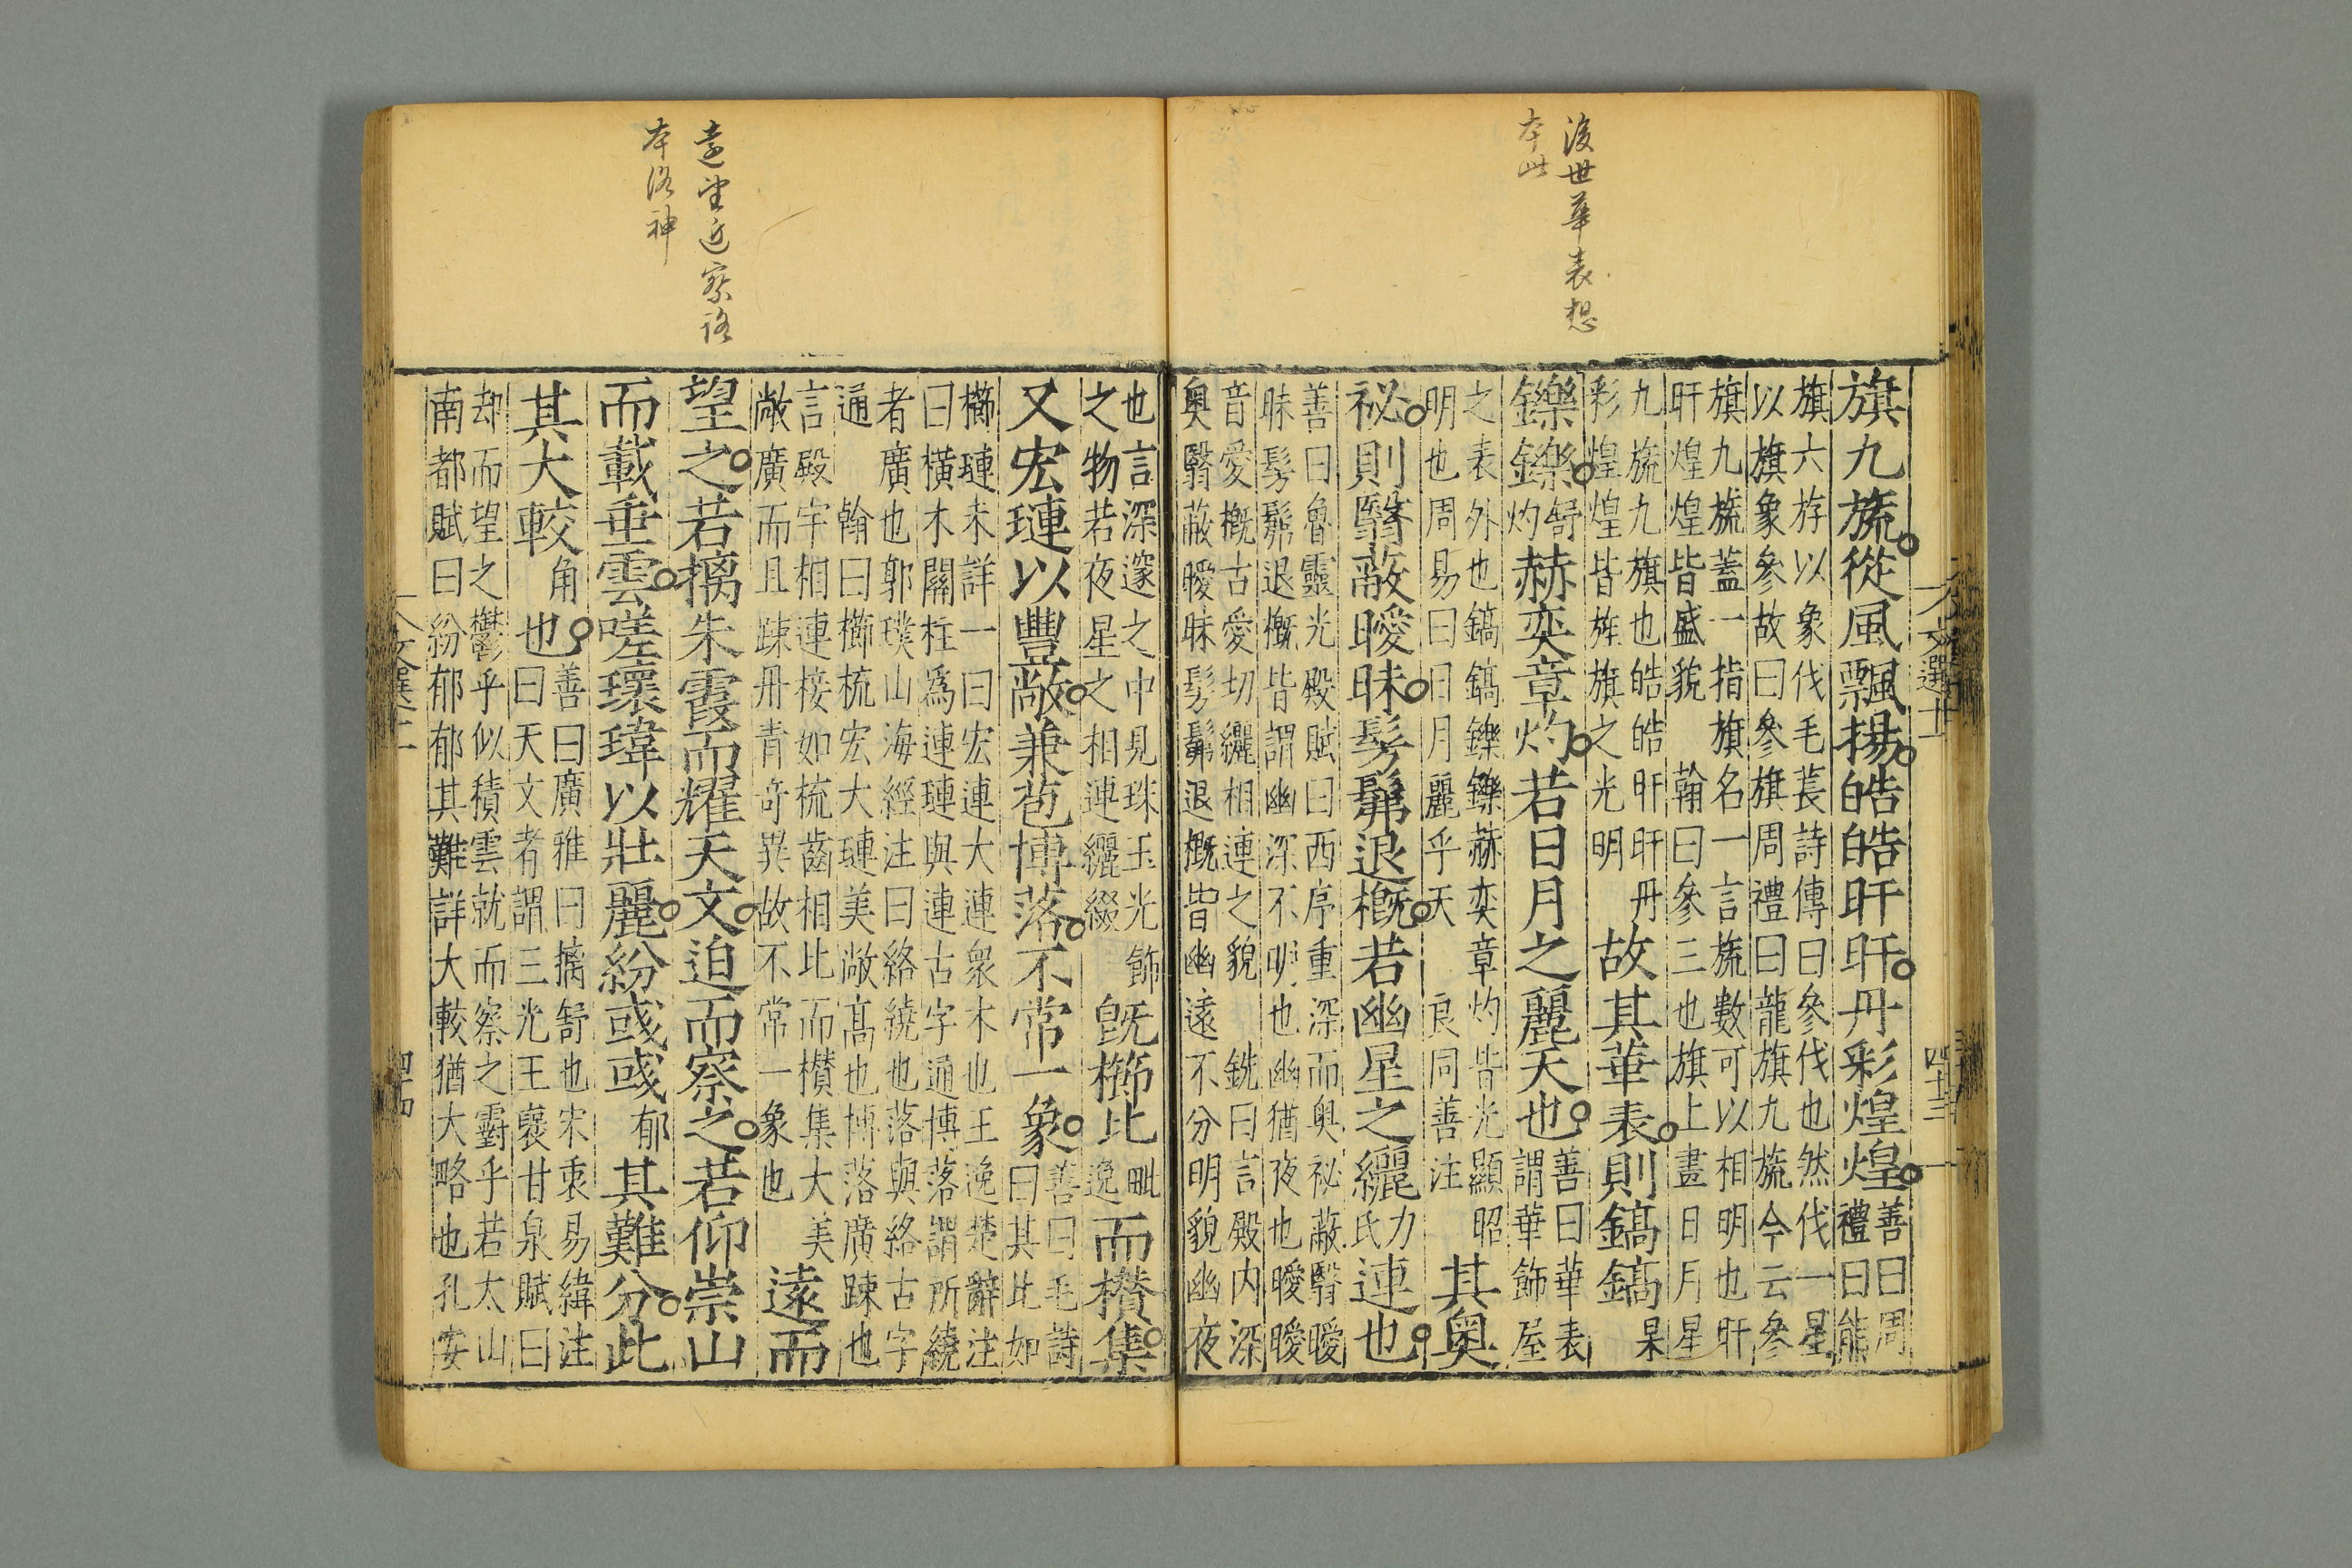 後世華表想
本此
旗九旒從風飄揚皓皓旰旰丹彩煌煌善曰周
禮曰熊
旗六斿以象伐毛萇詩傳曰參伐也然伐一星
以旗象參故曰參旗周禮曰龍旗九旒今云參
旗九旒蓋一指旗名一言旒數可以相明也旰
旰煌煌皆盛貌 翰曰參三也旗上畫日月星
九旒九旗也皓皓旰旰丹
彩煌煌皆旌旗之光明
故其華表則鎬鎬杲
鑠鑠舒
灼赫奕章灼若日月之麗天也善曰華表
謂華飾屋
之表外也鎬鎬鑠鑠赫奕章灼皆光顯昭
明也周易曰日月麗乎天 良同善注
其奧
祕則翳蔽曖昧髣髴退概若幽星之纚力
氏連也
善曰魯靈光殿賦曰西序重深而奧祕蔽翳曖
昧髣髴退概皆謂幽深不明也幽猶夜也曖曖
音愛概古愛切纚相連之貌 銑曰言殿内深
奥翳蔽曖昧髣髴退概皆幽遠不分明貌幽夜
也言深邃之中見珠玉光飾
之物若夜星之相連纚綴
既櫛比毗
逸而櫕集
又宏璉以豐敞兼苞博落不常一象善曰毛詩
曰其比如
櫛璉未詳一曰宏連大連衆木也王逸楚辭注
曰橫木關柱爲連璉與連古字通博落謂所繞
者廣也郭璞山海經注曰絡繞也落與絡古字
通 翰曰櫛梳宏大璉美敞高也博落廣踈也
言殿宇相連接如梳齒相比而櫕集大美
敞廣而且踈丹青奇異故不常一象也
遠而
望之若摛朱霞而耀天文迫而察之若仰崇山
而載垂雲嗟瓌瑋以壯麗紛彧彧郁其難分此
其大較角也善曰廣雅曰摛舒也宋衷易緯注
曰天文者謂三光王襃甘泉賦曰
却而望之鬱乎似積雲就而察之霨乎若太山
南都賦曰紛郁郁其難詳大較猶大略也孔安
遠望近察語
本洛神
文選十一
四十三
四十四